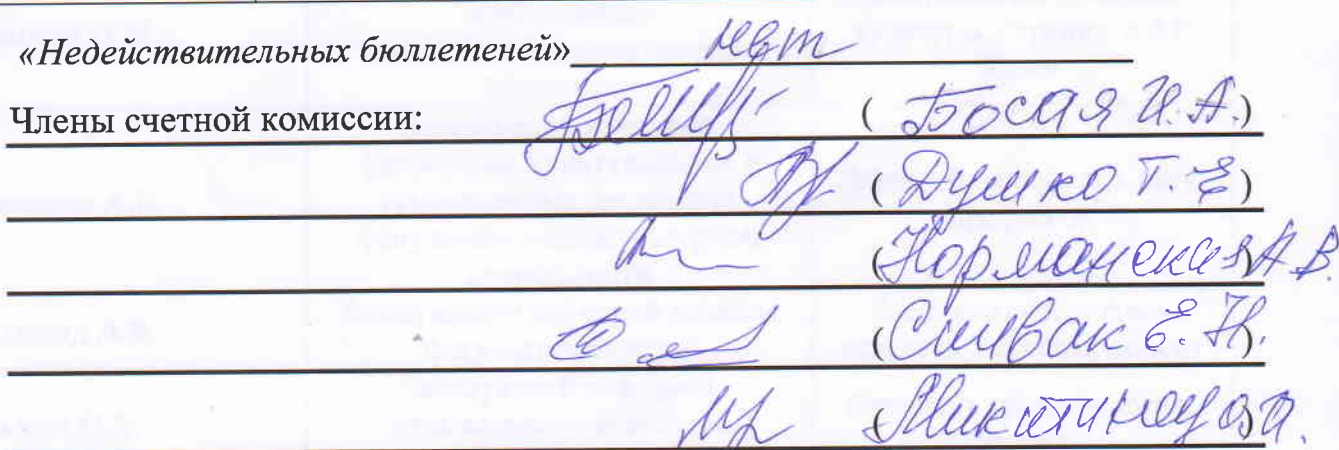 «Недействительных бюллетеней» нет
Члены счетной комиссии: (Босая И.А.)
(Думко Т.Е)
(Норманская А.В.
(Сивак Е.Н).